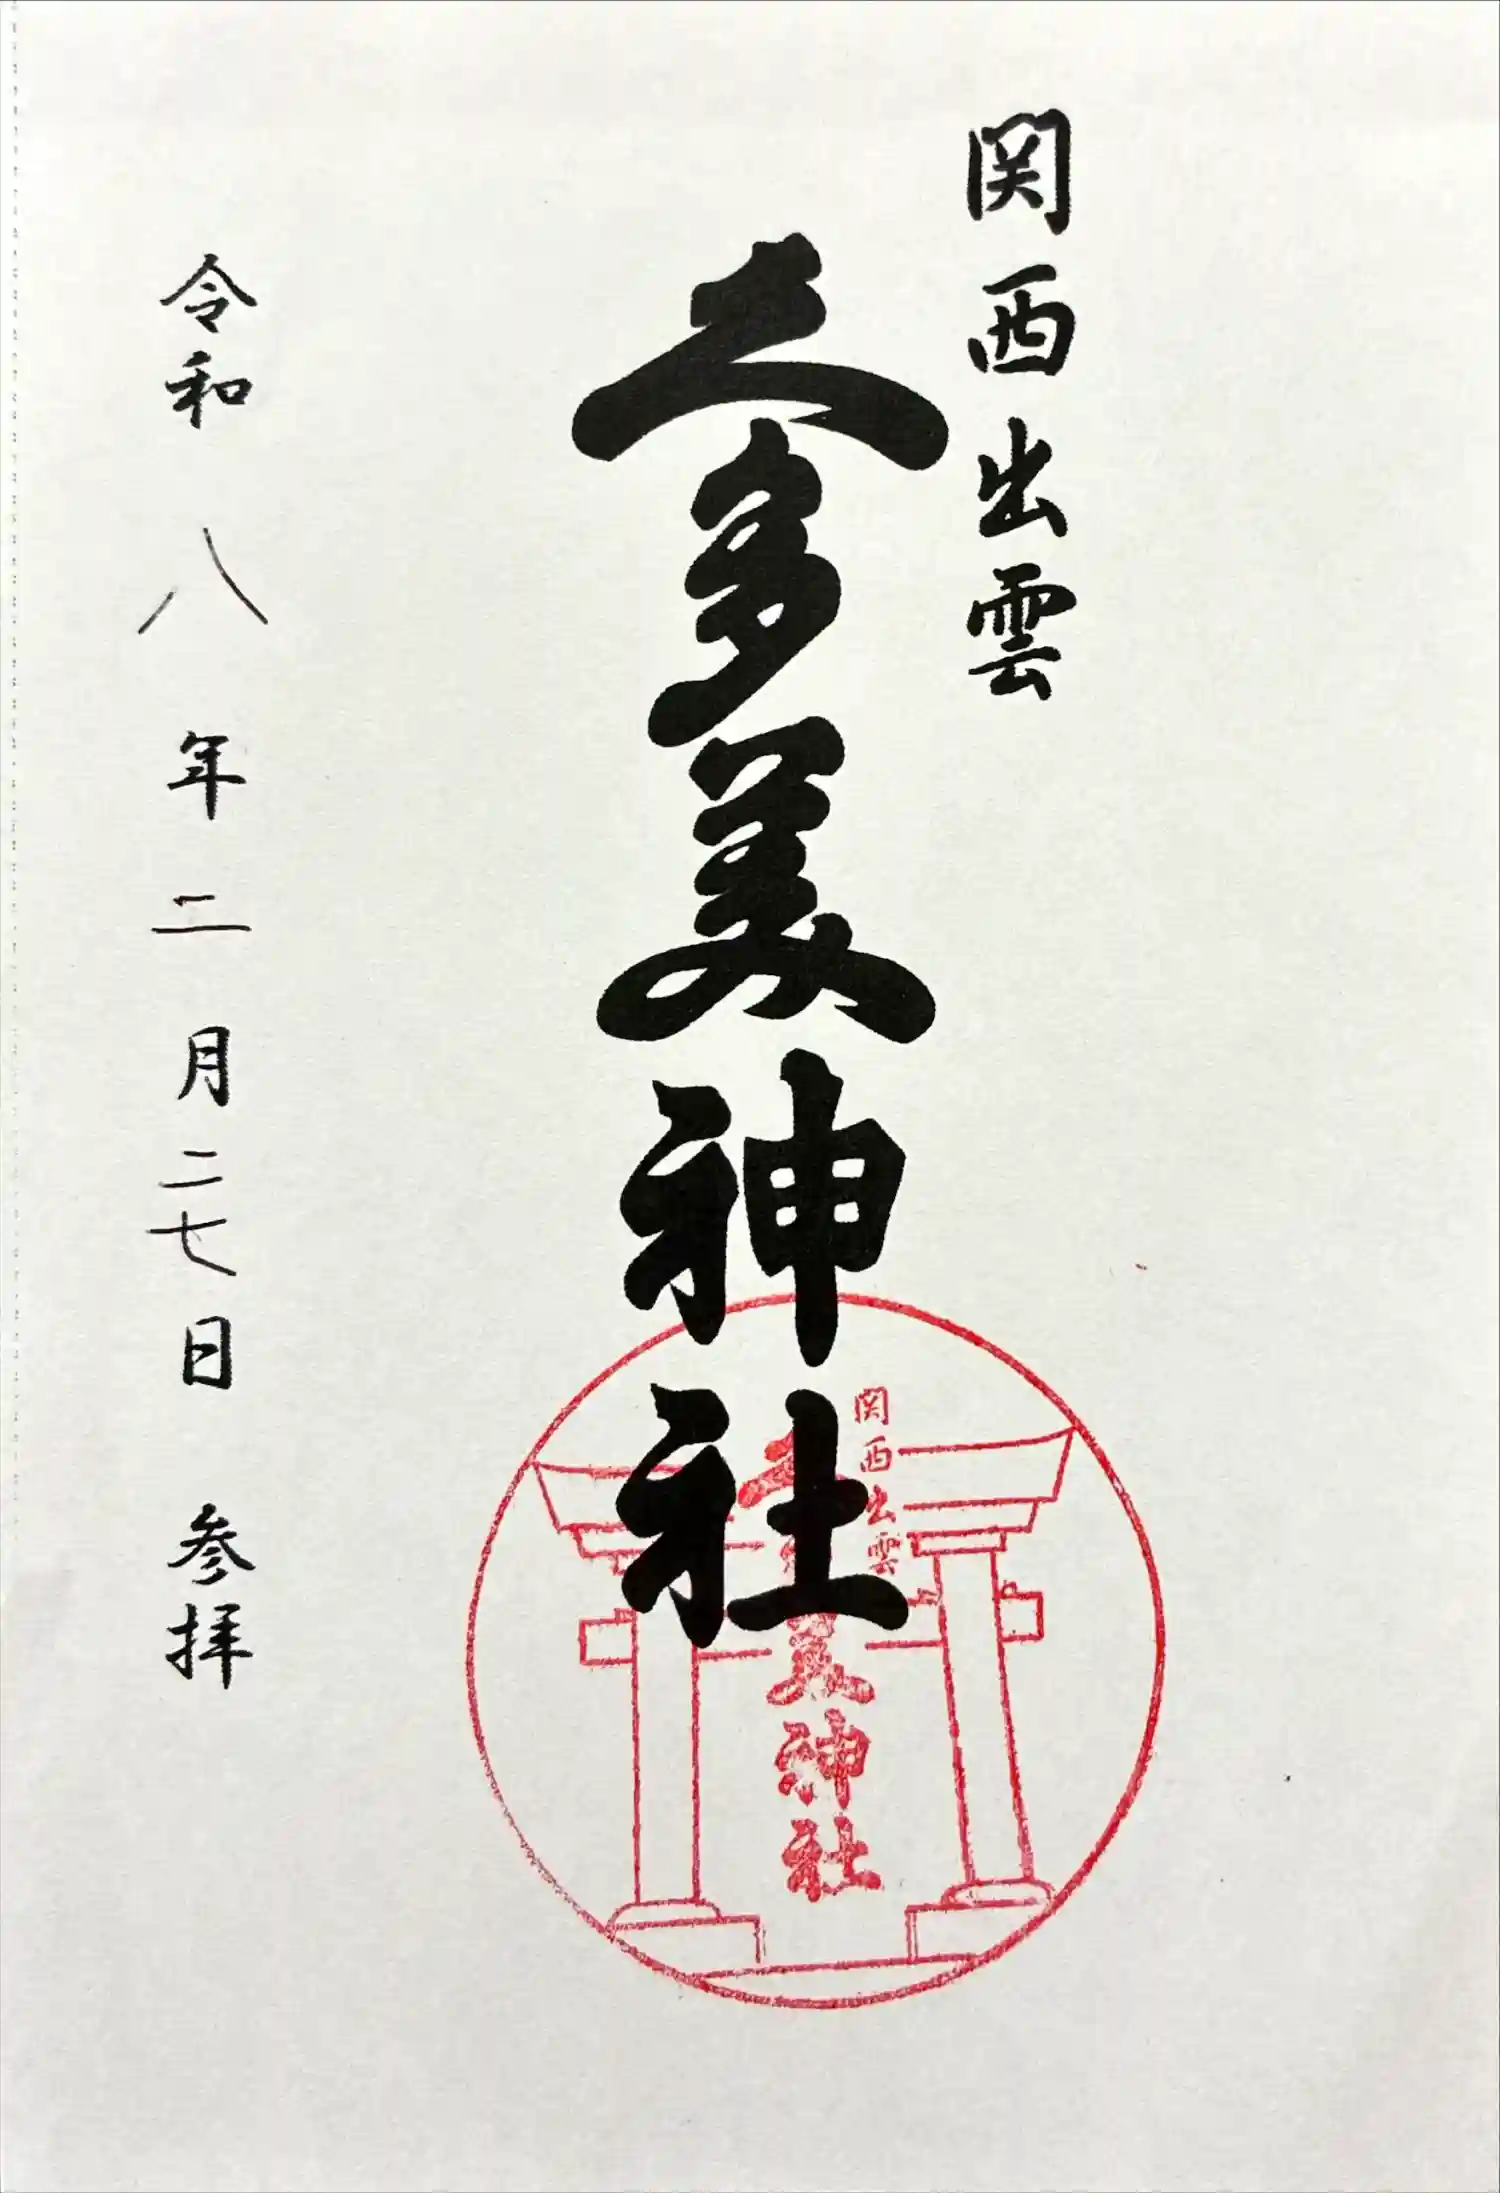 関西出雲
久多美神社
令和八年二月二七日 参拝
関西出雲
美神社